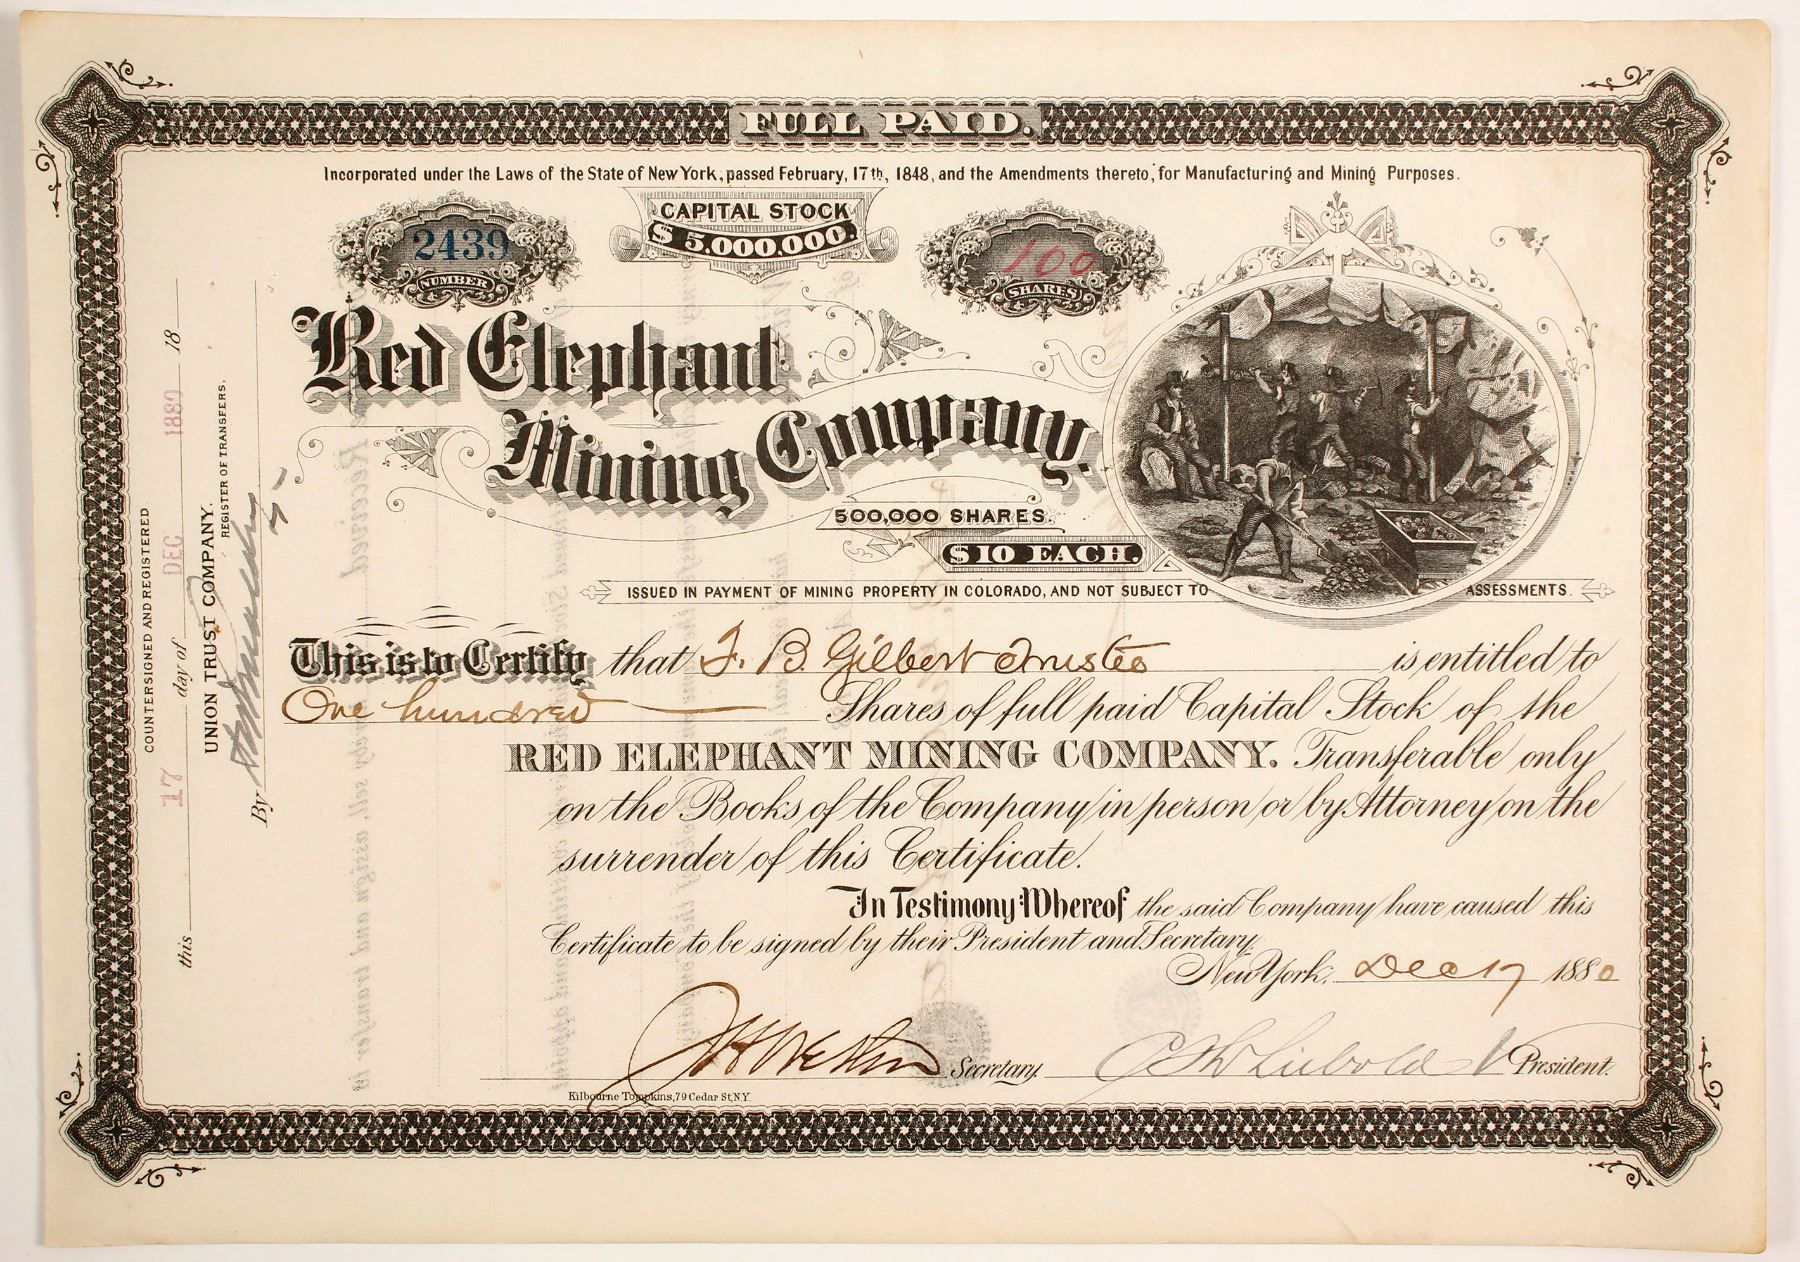 FULL PAID.
Incorporated under the Laws of the State of New York, passed February, 17th, 1848, and the Amendments thereto, for Manufacturing and Mining Purposes.
2439
NUMBER
CAPITAL STOCK
$ 5.000,000.
100
SHARES
Red Elephant
Mining Company.
500,000 SHARES.
$10 EACH.
ISSUED IN PAYMENT OF MINING PROPERTY IN COLORADO, AND NOT SUBJECT TO ASSESSMENTS.
This is to Certify that F. B. Gilbert Trustee is entitled to
One hundred Shares of full paid Capital Stock of the
RED ELEPHANT MINING COMPANY. Transferable only
on the Books of the Company in person or by Attorney on the
surrender of this Certificate.
In Testimony Whereof the said Company have caused this
Certificate to be signed by their President and Secretary.
New York, Dec 17 1880
Secretary.
President.
Kilbourne Tompkins, 79 Cedar St, N.Y.
COUNTERSIGNED AND REGISTERED
this 17 day of DEC 1880 18
UNION TRUST COMPANY.
REGISTER OF TRANSFERS.
By